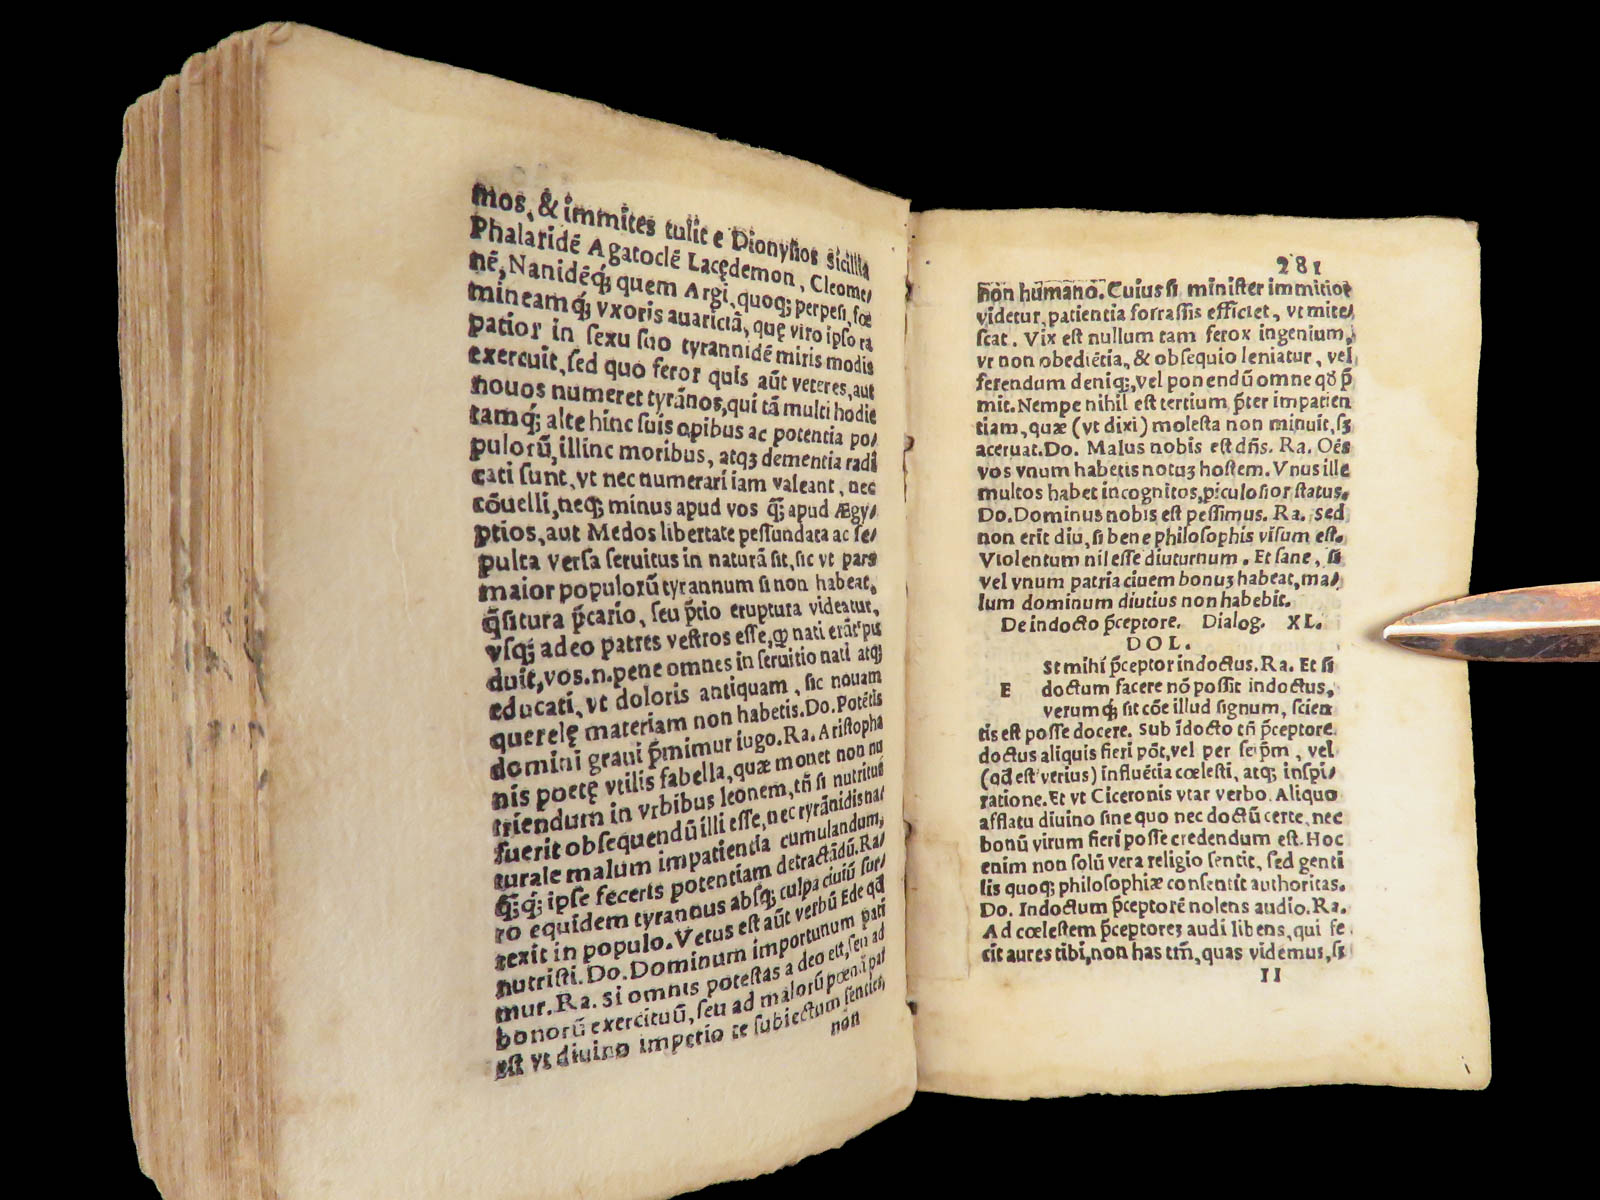 mos, & immites tulit e Dionysios sicilia
Phalaridē Agatoclē Lacędemon, Cleome/
nē, Nanidēq; quem Argi, quoq; perpesi, fœ
mineamq; vxoris auarictā, quę viro ipso ra
patior in sexu suo tyrannidē miris modis
exercuit, sed quo feror quis aūt veteres, aut
nouos numeret tyrānos, qui tā multi hodie
tamq; alte hinc suis opibus ac potentia po/
pulorū, illinc moribus, atqꝫ dementia radi
cati sunt, vt nec numerari iam valeant, nec
cōuelli, neq; minus apud vos q̄; apud Ægy/
ptios, aut Medos libertate pessundata ac se/
pulta versa seruitus in naturā sit, sic vt pars
maior populorū tyrannum si non habeat,
q̄situra p̄cario, seu p̄tio eruptura videatur,
vsq; adeo patres vestros esse, qꝫ nati erāt pu
duit, vos.n.pene omnes in seruitio nati atq;
educati, vt doloris antiquam, sic nouam
querelę materiam non habetis. Do. Potētis
domini graui p̄mimur iugo. Ra. Aristopha
nis poetę vtilis fabella, quæ monet non nu
triendum in vrbibus leonem, tn̄ si nutritus
fuerit obsequendū illi esse, nec tyrānidis nat
turale malum impatientia cumulandum,
q̄;q; ipse feceris potentiam detractādū. Ra/
ro equidem tyrannus absq; culpa ciuiū sur/
rexit in populo. Vetus est aūt verbū Ede qđ
nutristi. Do. Dominum importunum pati
mur. Ra. Si omnis potestas a deo est, seu ad
bonorū exercituū, seu ad malorū poenā pat
est vt diuino imperio te subiectum senties,
non
281
non humano. Cuius si minister immitior
videtur, patientia forrassis efficiet, vt mite/
scat. Vix est nullum tam ferox ingenium,
vr non obediētia, & obsequio leniatur, vel
ferendum deniq;, vel ponendū omne qđ p̄
mit. Nempe nihil est tertium p̄ter impatien
tiam, quæ (vt dixi) molesta non minuit, sꝫ
aceruat. Do. Malus nobis est dn̄s. Ra. Oēs
vos vnum habetis notuꝫ hostem. Vnus ille
multos habet incognitos, piculosior status.
Do. Dominus nobis est pessimus. Ra. sed
non erit diu, si bene philosophis visum est.
Violentum nil esse diuturnum. Et sane, si
vel vnum patria ciuem bonuꝫ habeat, ma/
lum dominum diutius non habebit.
De indocto p̄ceptore. Dialog. XL.
DOL.
E st mihi p̄ceptor indoctus. Ra. Et si
doctum facere nō possit indoctus,
verumq; sit cōe illud signum, scien
tis est posse docere. Sub īdocto tn̄ p̄ceptore
doctus aliquis fieri pōt, vel per seip̄m, vel
(qđ est verius) influētia cœlesti, atq; inspi/
ratione. Et vt Ciceronis vtar verbo. Aliquo
afflatu diuino sine quo nec doctū certe, nec
bonū virum fieri posse credendum est. Hoc
enim non solū vera religio sentit, sed genti
lis quoq; philosophiæ consentit authoritas.
Do. Indoctum p̄ceptorē nolens audio. Ra.
Ad cœlestem p̄ceptoreꝫ audi libens, qui fe
cit aures tibi, non has tm̄, quas videmus, sꝫ
II